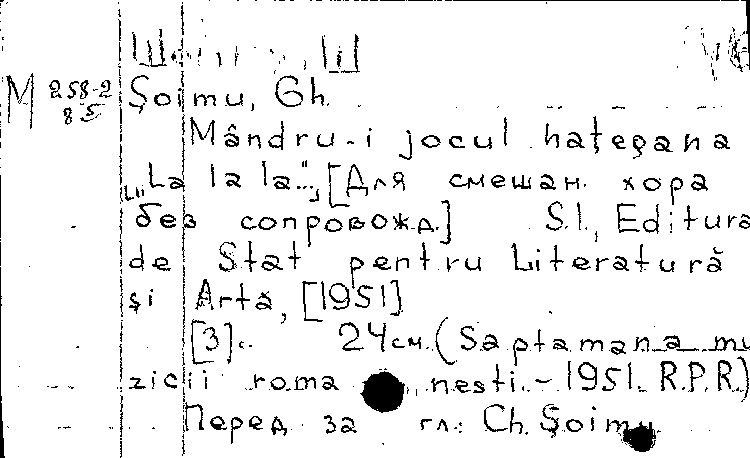 M 258-2
85
Şoimu, Gh.
Mândru-i jocul haţegana
„La la la...", [Для смешан. хора
без сопровожд.] S.l., Editura
de Stat pentru Literatură
şi Artă, [1951]
[3] с. 24 см. (Saptamana mu
zicii romanesti. - 1951. R.P.R.)
Перед загл.: Ch. Şoimu